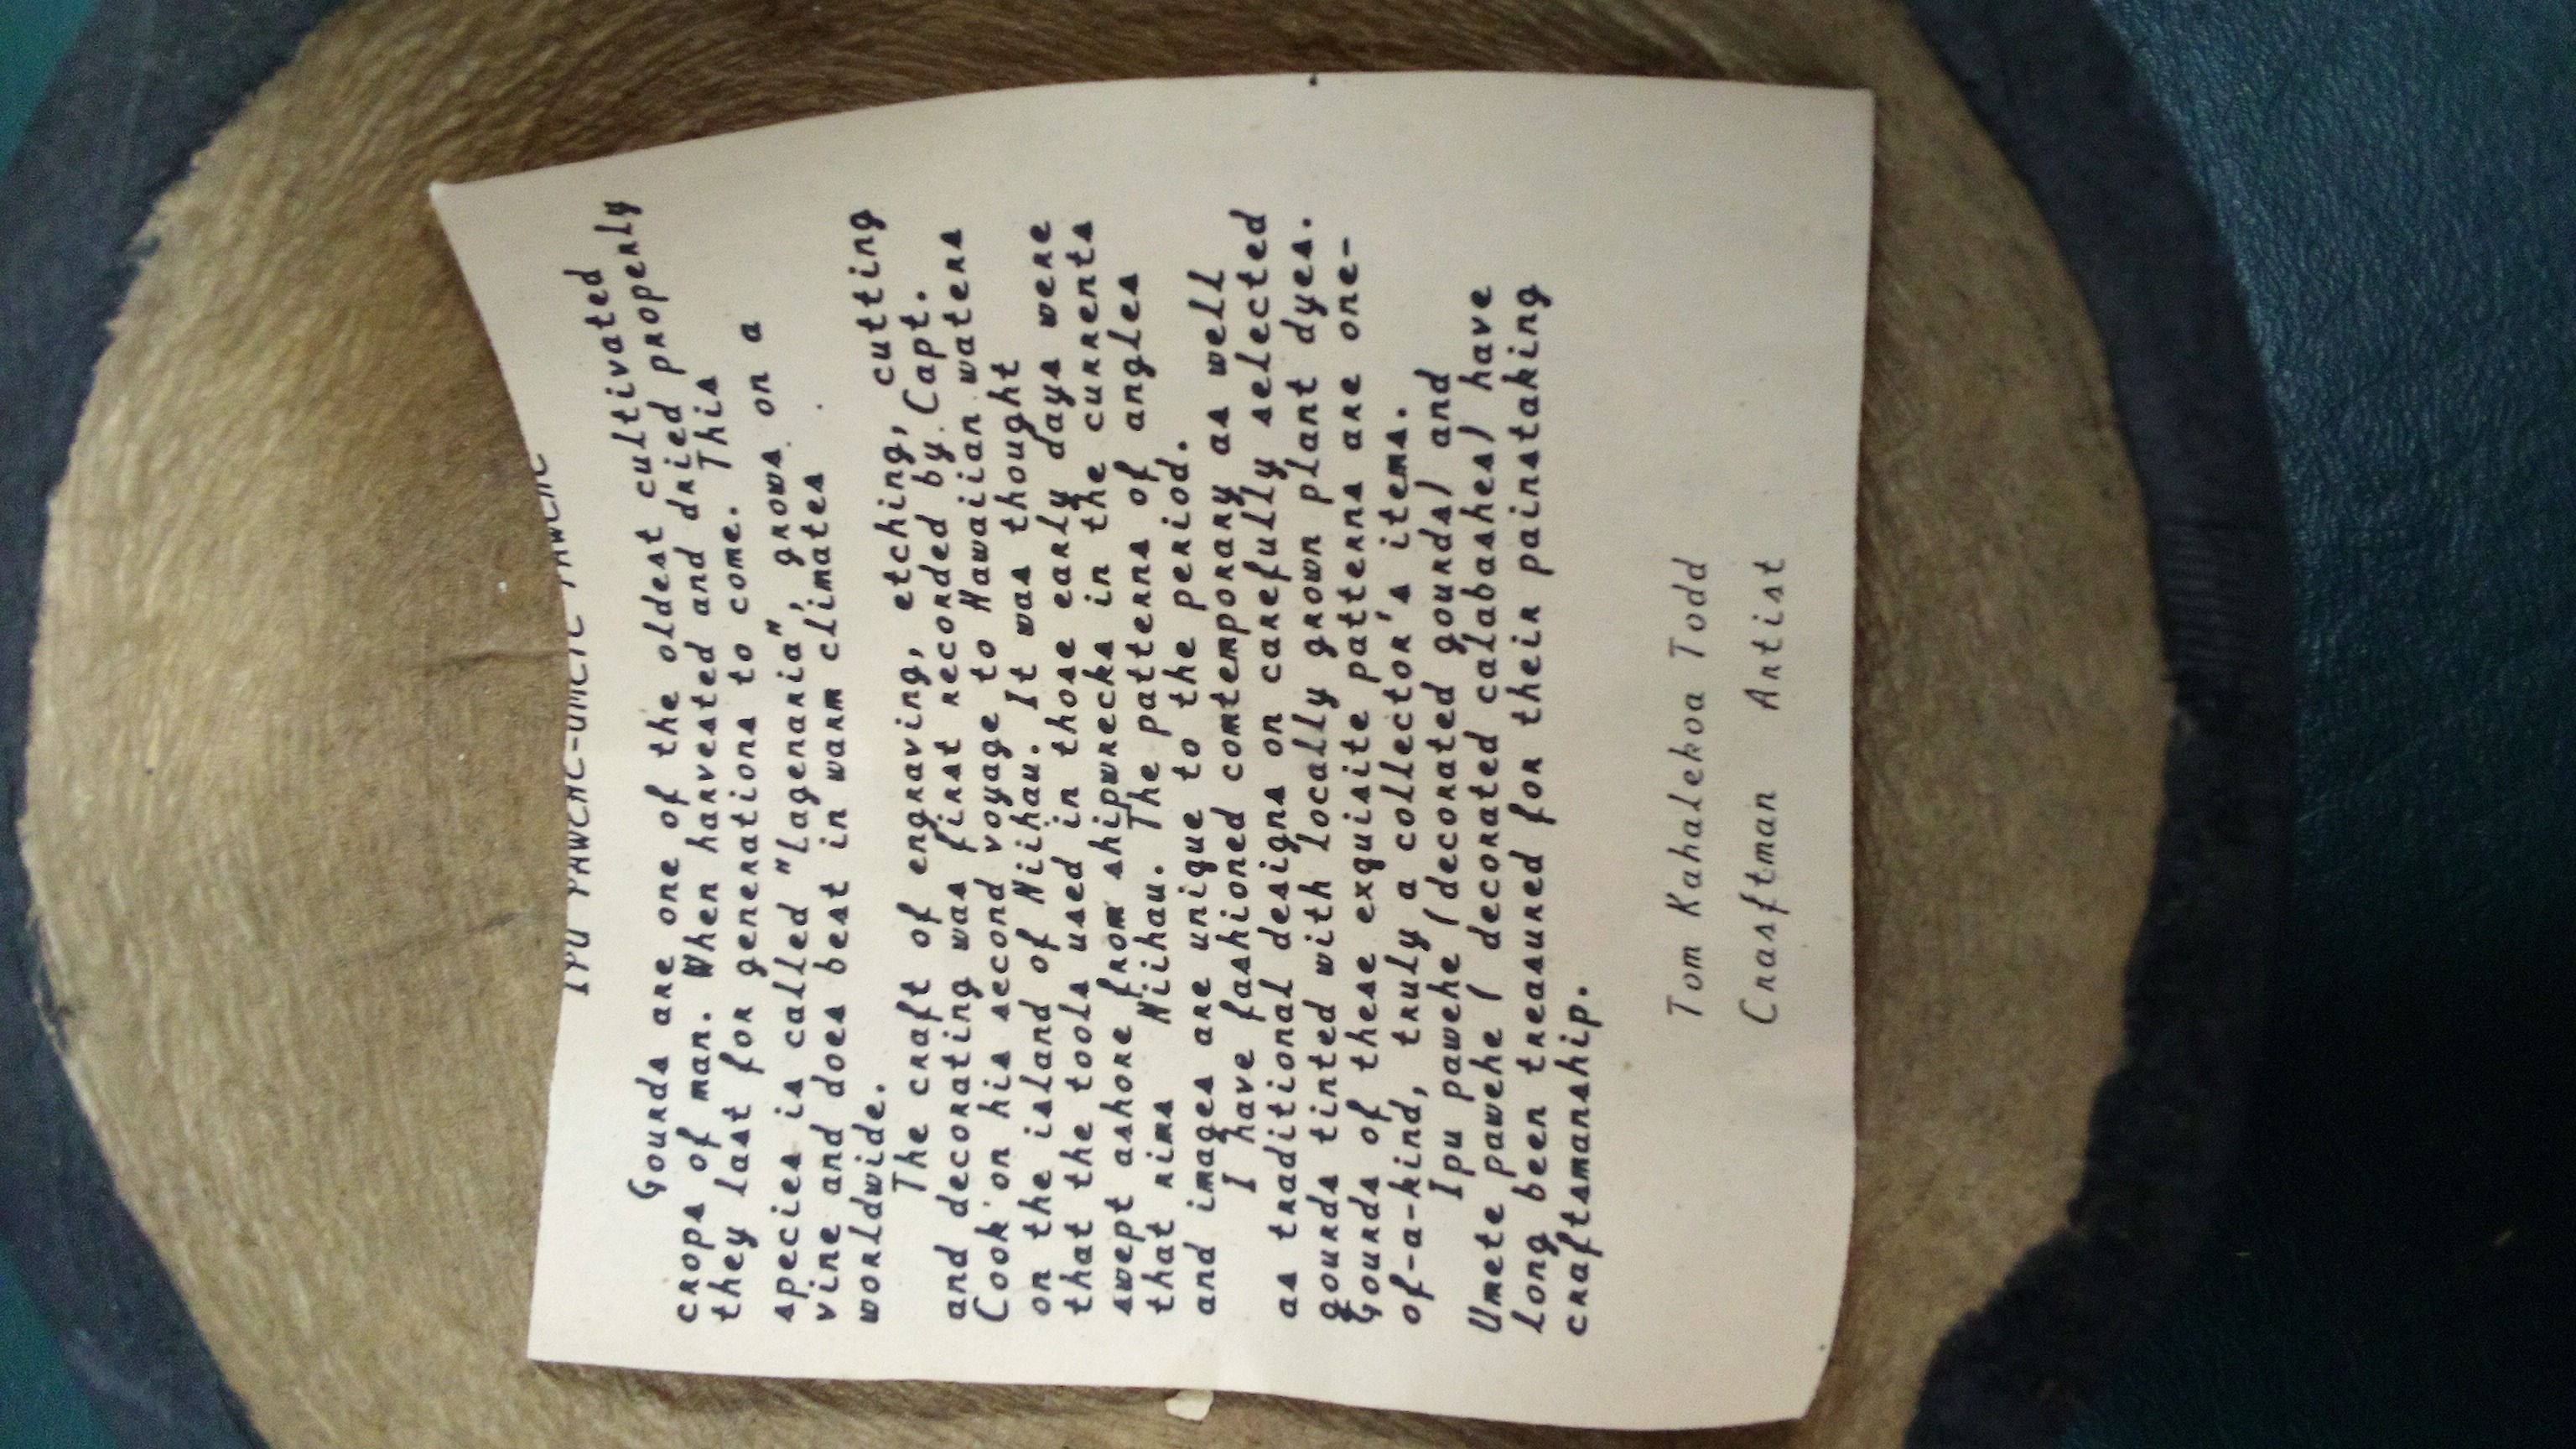 IPU PAWEHE-UMETE PAWEHE
Gourds are one of the oldest cultivated
crops of man. When harvested and dried properly
they last for generations to come. This
species is called "lagenaria", grows on a
vine and does best in warm climates
worldwide.
The craft of engraving, etching, cutting
and decorating was first recorded by Capt.
Cook on his second voyage to Hawaiian waters
on the island of Niihau. It was thought
that the tools used in those early days were
swept ashore from shipwrecks in the currents
that rims Niihau. The patterns of angles
and images are unique to the period.
I have fashioned comtemporary as well
as traditional designs on carefully selected
gourds tinted with locally grown plant dyes.
Gourds of these exquisite patterns are one-
of-a-kind, truly a collector's items.
Ipu pawehe (decorated gourds) and
Umete pawehe ( decorated calabashes) have
long been treasured for their painstaking
craftsmanship.
Tom Kahalekoa Todd
Crasftman Artist